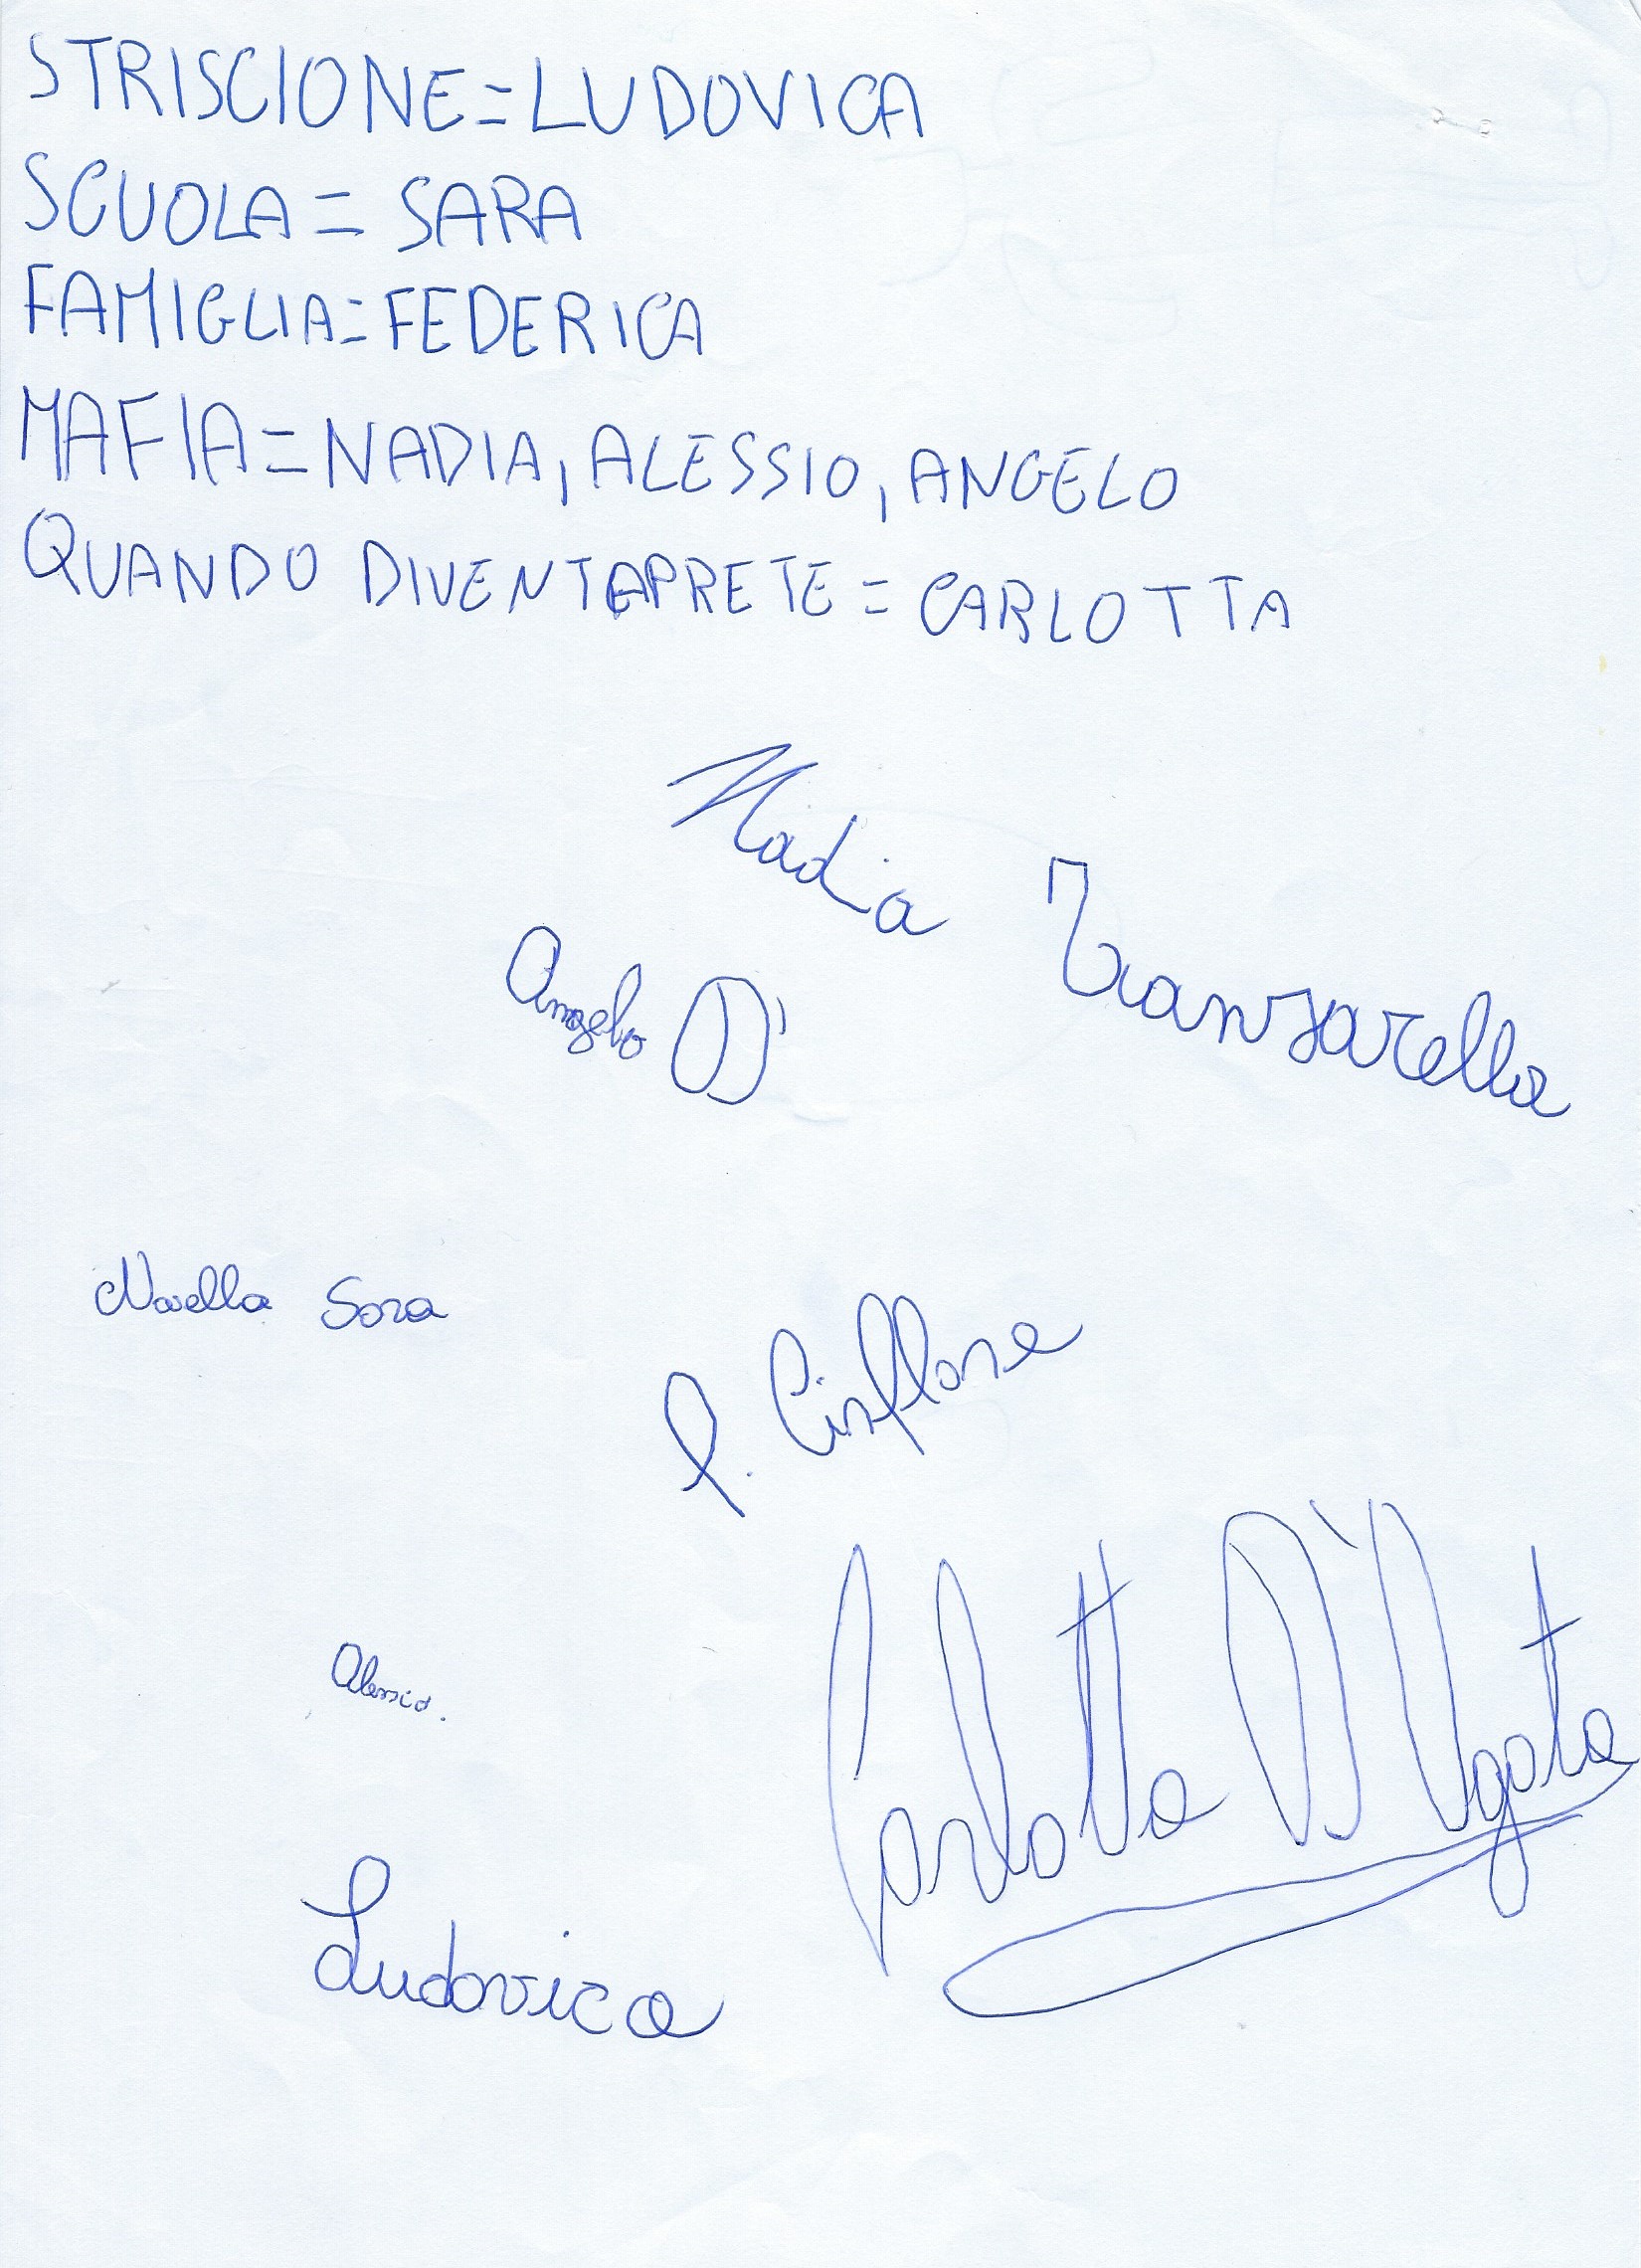 STRISCIONE=LUDOVICA
SCUOLA= SARA
FAMIGLIA=FEDERICA
MAFIA=NADIA, ALESSIO, ANGELO
QUANDO DIVENTAPRETE = CARLOTTA
Nadia Tranzarella
Angelo D'
Novella Sara
Alessio.
Carlotta D'Agata
Ludovica